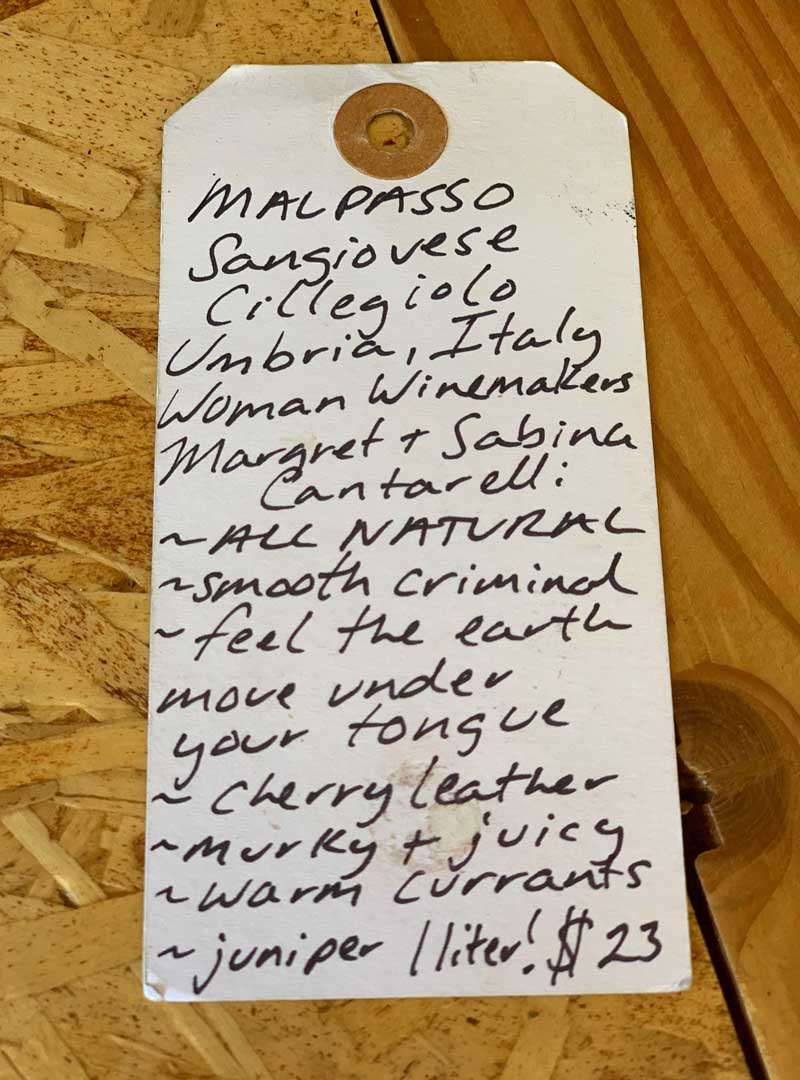 MALPASSO
Sangiovese
Cillegiolo
Umbria, Italy
Woman Winemakers
Margret + Sabina
Cantarelli
~ALL NATURAL
~smooth criminal
~feel the earth
move under
your tongue
~cherry leather
~murky + juicy
~warm currants
~juniper 1 liter! $23